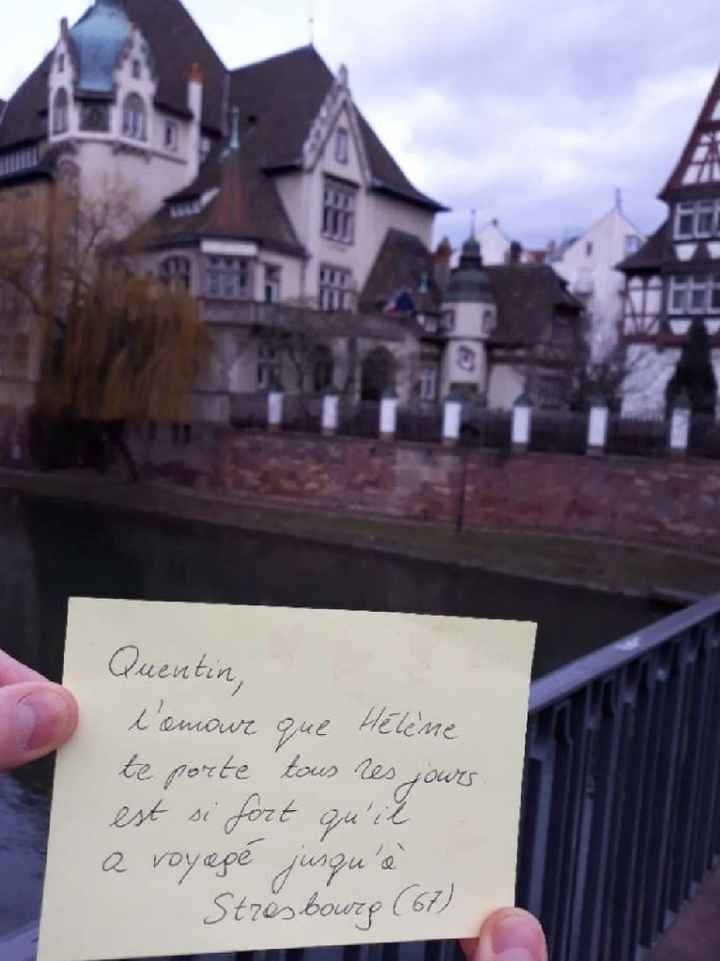 Quentin,
l'amour que Hélène
te porte tous les jours
est si fort qu'il
a voyagé jusqu'à
Strasbourg (67)